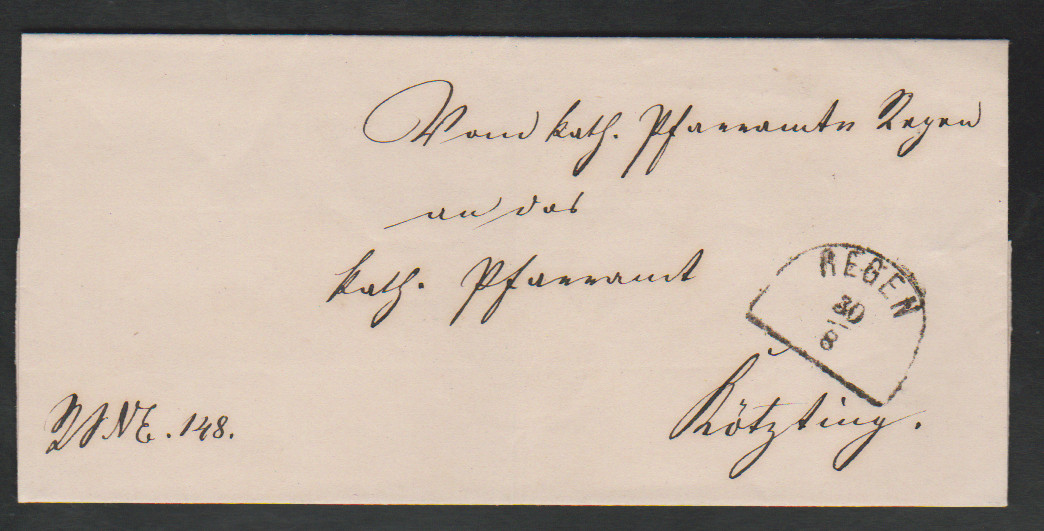 Vom kath. Pfarramte Regen
an das
kath. Pfarramt
REGEN
30
8
Kötzting.
148.